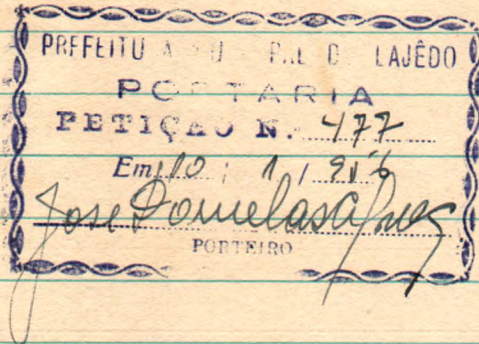 PREFEITU A U PAL D LAJÊDO
PORTARIA
PETIÇÃO N. 477
Em, 10 / 1 / 956
José Dornelas
PORTEIRO